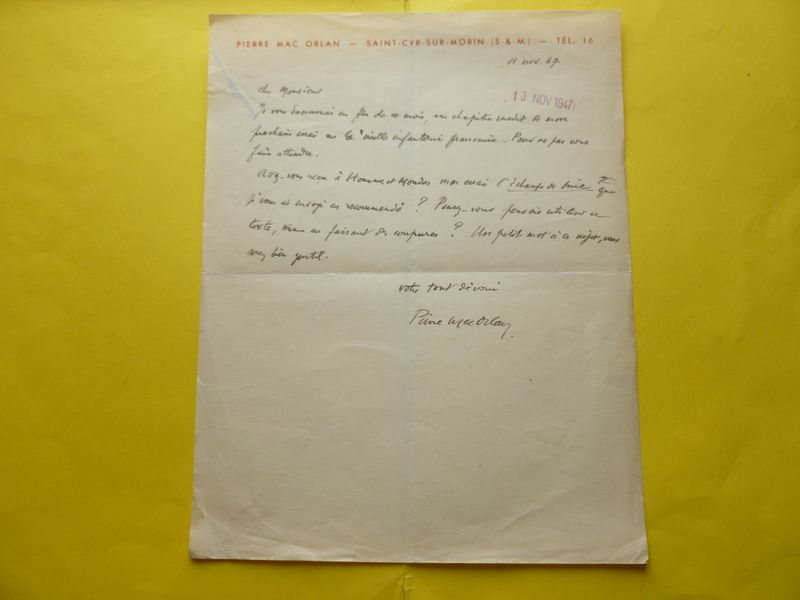 PIERRE MAC ORLAN — SAINT-CYR-SUR-MORIN (S.&-M.) — TÉL. 16
11 nov. 47
13 NOV 1947
Cher Monsieur
Je vous donnerai en fin de ce mois, un chapitre inédit de mon
prochain essai sur la "vieille infanterie française... Pour ne pas vous
faire attendre.
Avez-vous reçu à Hommes et Mondes mon essai l'écharpe de suie que
je vous ai envoyé en recommandé ? Pensez-vous pouvoir utiliser ce
texte, même en faisant des coupures ? Un petit mot à ce sujet, vous
serez bien gentil.
votre tout dévoué
Pierre Mac Orlan